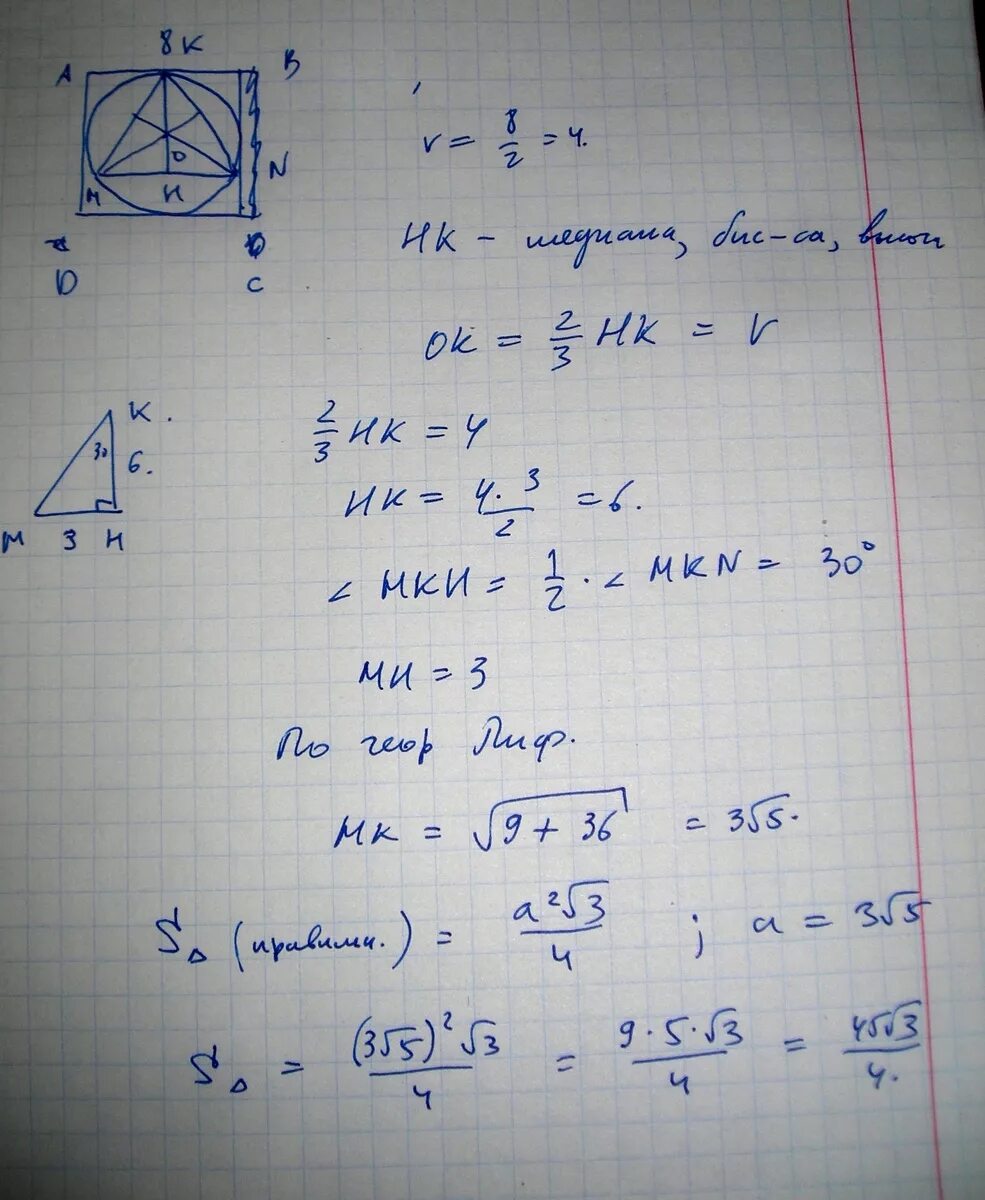 8 K
A B
r = 8/2 = 4.
O
M H N
НК – медиана, бис-са, высот
D C
OK = 2/3 HK = r
K.
30 6.
M 3 H
2/3 HK = 4
HK = 4·3/2 = 6.
∠ MKH = 1/2 · ∠ MKN = 30°
MH = 3
По теор Пиф.
MK = √(9 + 36) = 3√5.
S△ (правильн.) = a²√3/4 ; a = 3√5
S△ = (3√5)²√3/4 = 9·5·√3/4 = 45√3/4.